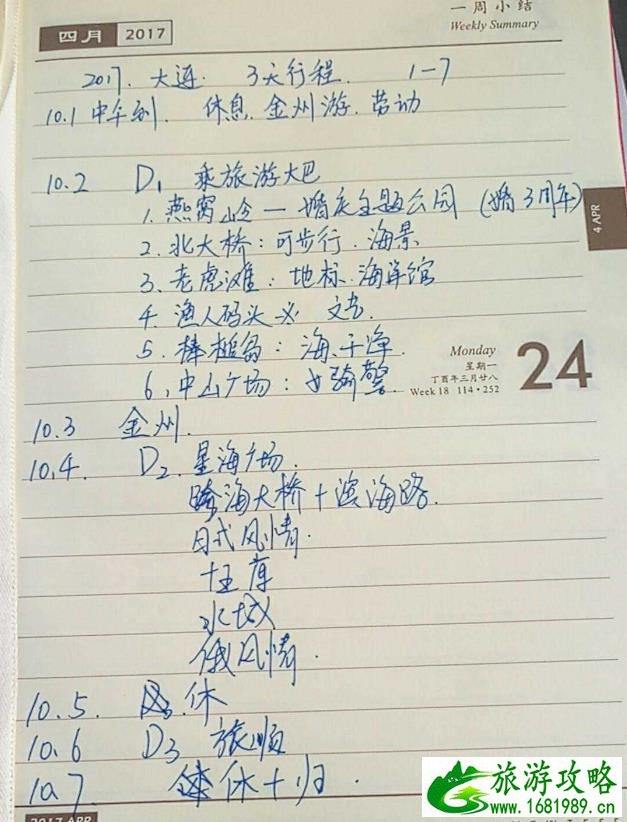 一周小结
Weekly Summary
四月 2017
2017. 大连. 3天行程. 1-7
10.1 中午到. 休息. 金州游. 劳动
10.2 D1 乘旅游大巴
1. 燕窝岭一婚庆主题公园 (婚3周年)
2. 北大桥: 可步行. 海景
4 APR
3. 老虎滩: 地标. 海洋馆
4. 渔人码头
5. 棒槌岛: 海、干净.
Monday
星期一
24
丁酉年三月廿八
6. 中山广场: 女骑警.
Week 18 114·252
10.3 金州.
10.4. D2. 星海广场.
跨海大桥+滨海路.
日式风情.
水城
俄风情.
10.5. 休
10.6 D3 旅顺
10.7 休+归.
旅游攻略
www.1681989.cn
2017 APR